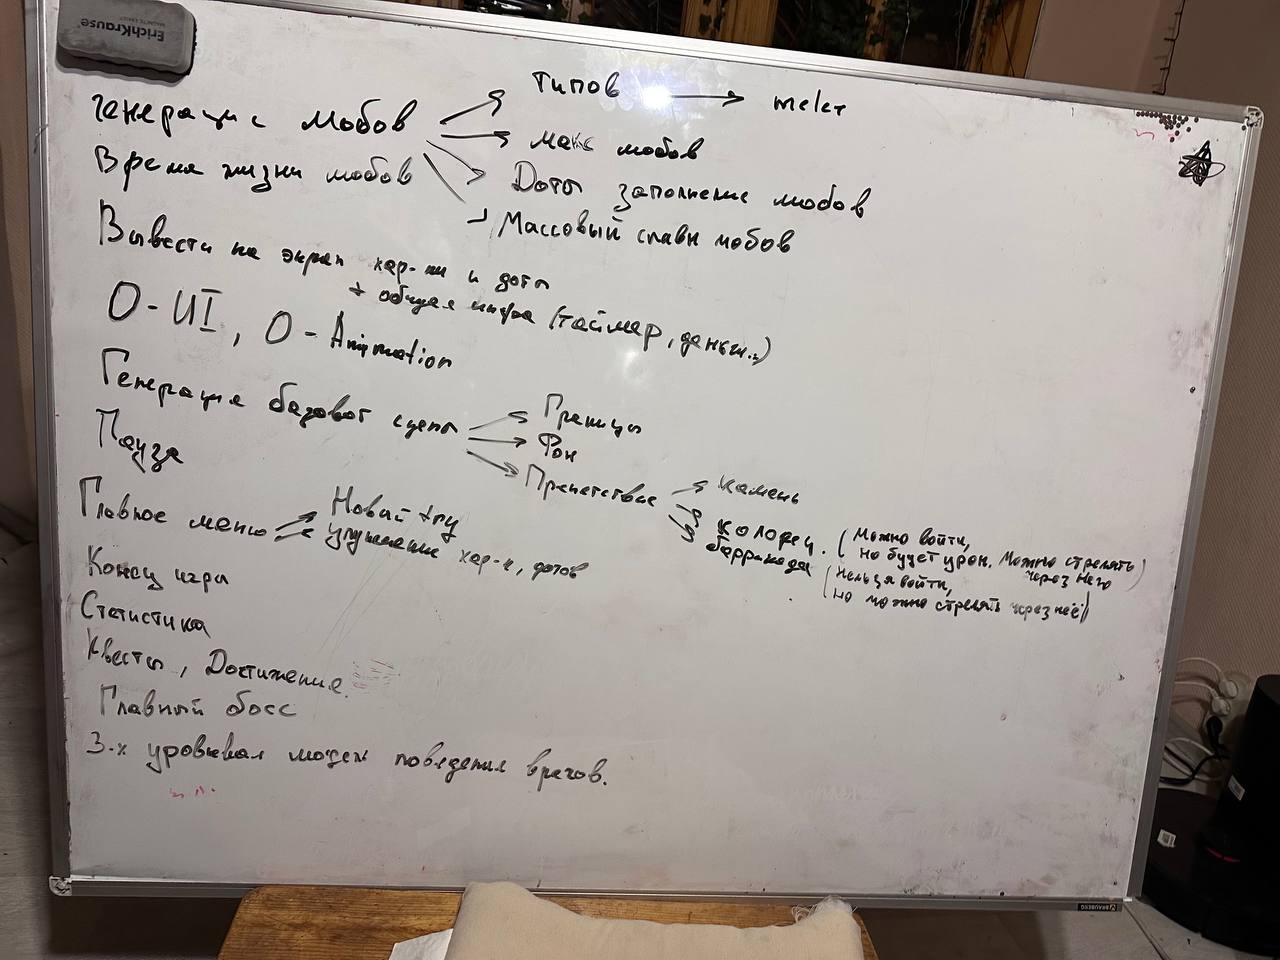 ErichKrause
Генерация мобов → типов → melee
→ макс мобов
→ Доты заполнение мобов
→ Массовый спавн мобов
Время жизни мобов
Вывести на экран хар-ки и доты
+ общая инфа (таймер, деньги..)
О-UI, О-Animation
Генерация базовой сцены → Границы
→ Фон
→ Препятствие → камень
→ колодец. (Можно войти,
но будет урон. Можно стрелять
через него)
→ баррикада (Нельзя войти,
но можно стрелять через неё)
Пауза
Главное меню → Новый try
→ улучшение хар-к, дотов
Конец игры
Статистика
Квесты, Достижение.
Главный босс
3-х уровневая модель поведения врагов.
BRAUBERG